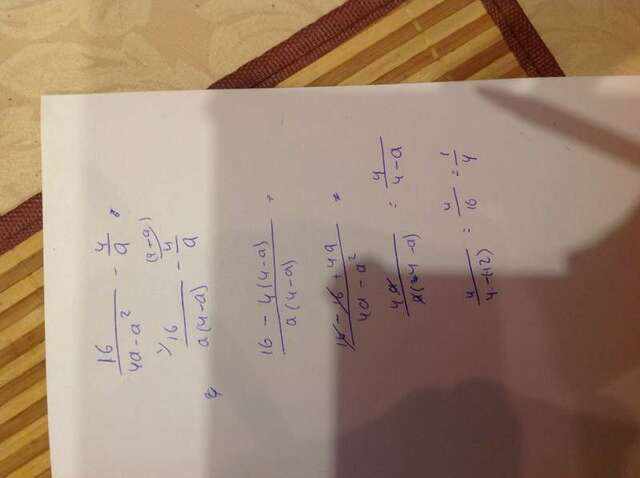 16/(4a-a²) - 4/a =
1/ 16/(a(4-a)) - (4-a)/ 4/a
(16-4(4-a))/(a(4-a)) =
(16-16+4a)/(4a-a²) =
4a/(a(4-a)) = 4/(4-a)
4/(4-(-12)) = 4/16 = 1/4